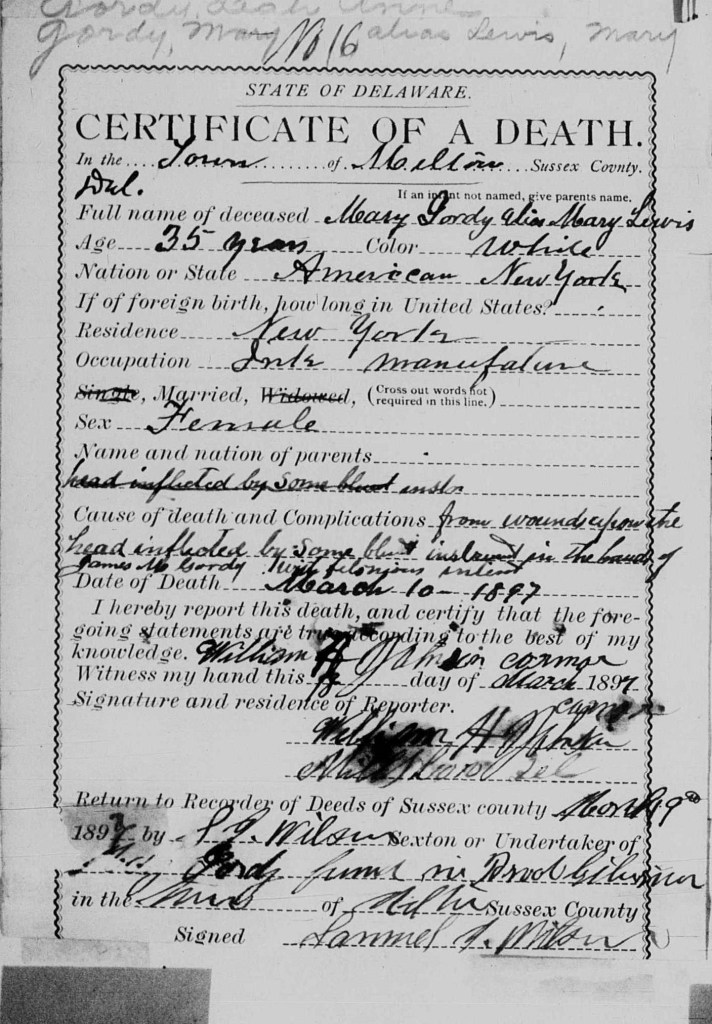 Gordy, Leah Anne
Gordy, Mary alias Lewis, Mary
No 16
STATE OF DELAWARE.
CERTIFICATE OF A DEATH.
In the Town of Milton Sussex County.
Del.
If an infant not named, give parents name.
Full name of deceased Mary Gordy alias Mary Lewis
Age 35 years Color White
Nation or State American New York
If of foreign birth, how long in United States?
Residence New York
Occupation Ink manufature
Single, Married, Widowed, (Cross out words not required in this line.)
Sex Female
Name and nation of parents
head inflicted by some blunt inst
Cause of death and Complications from wounds upon the
head inflicted by some blunt instrument in the hands of
James M Gordy with felonious intent
Date of Death March 10 - 1897
I hereby report this death, and certify that the fore-
going statements are true according to the best of my
knowledge. William H Johnson coroner
Witness my hand this day of March 1897
Signature and residence of Reporter. coroner
William H Johnson
Del
Return to Recorder of Deeds of Sussex county
1897 by S. J. Wilson Sexton or Undertaker of
Gordy found in
in the of Sussex County
Signed Samuel J. Wilson